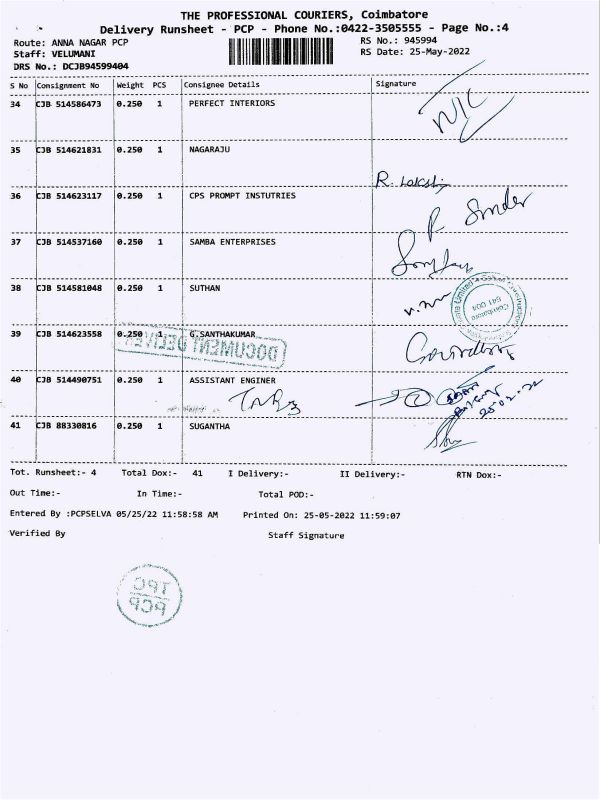 THE PROFESSIONAL COURIERS, Coimbatore
Delivery Runsheet - PCP - Phone No.:0422-3505555 - Page No.:4
Route: ANNA NAGAR PCP RS No.: 945994
Staff: VELUMANI RS Date: 25-May-2022
DRS No.: DCJB94599404
S No Consignment No Weight PCS Consignee Details Signature
34 CJB 514586473 0.250 1 PERFECT INTERIORS N/C
35 CJB 514621831 0.250 1 NAGARAJU
R. Lakshi
36 CJB 514623117 0.250 1 CPS PROMPT INSTUTRIES
37 CJB 514537160 0.250 1 SAMBA ENTERPRISES
38 CJB 514581048 0.250 1 SUTHAN
Coimbatore
641 004
39 CJB 514623558 0.250 1 G.SANTHAKUMAR
DOCUMENT DELIVERED
40 CJB 514490751 0.250 1 ASSISTANT ENGINER
41 CJB 88330816 0.250 1 SUGANTHA
Tot. Runsheet:- 4 Total Dox:- 41 I Delivery:- II Delivery:- RTN Dox:-
Out Time:- In Time:- Total POD:-
Entered By :PCPSELVA 05/25/22 11:58:58 AM Printed On: 25-05-2022 11:59:07
Verified By Staff Signature
TPC
PCP